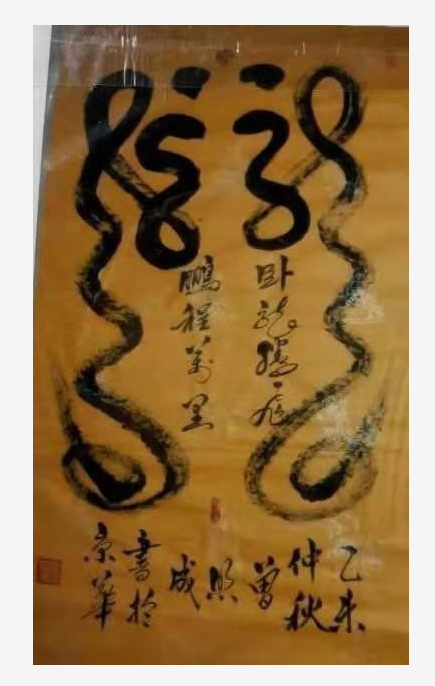 卧龍騰飛
鵬程萬里
乙未
仲秋
曾
照
成
書於
京華